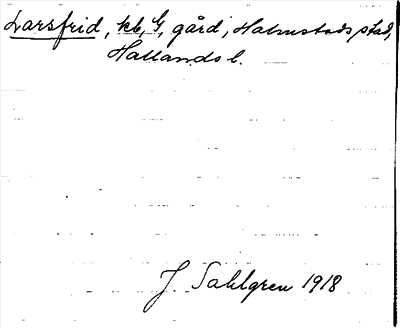 Larsfrid, kb, G, gård, Halmstads stad,
Hallands l.
J. Sahlgren 1918